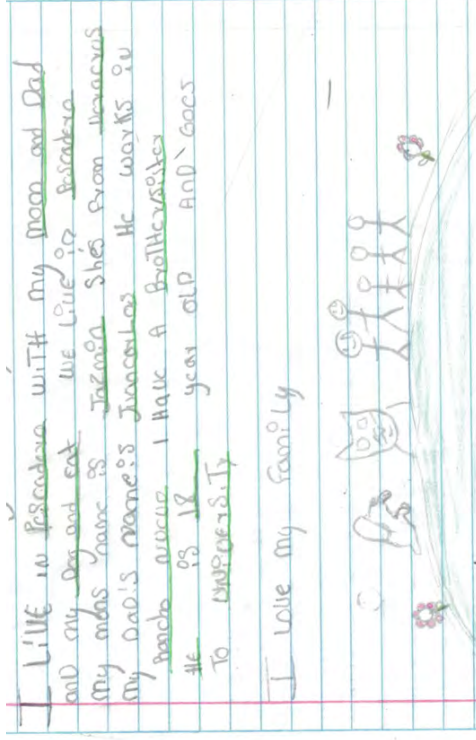 I LiVE iN Pescadero wiTH my moom and Dad
anD my Dog and cat we Live in Pescadero
my moms name is Jazmin Shes From Veracrus
my DaD's name is Juancarlos He works in
Rancho nuevo I Have A BroTHer/sister
HE is 18 year OLD AnD Goes
To UNiverSiTy
I Love my Family